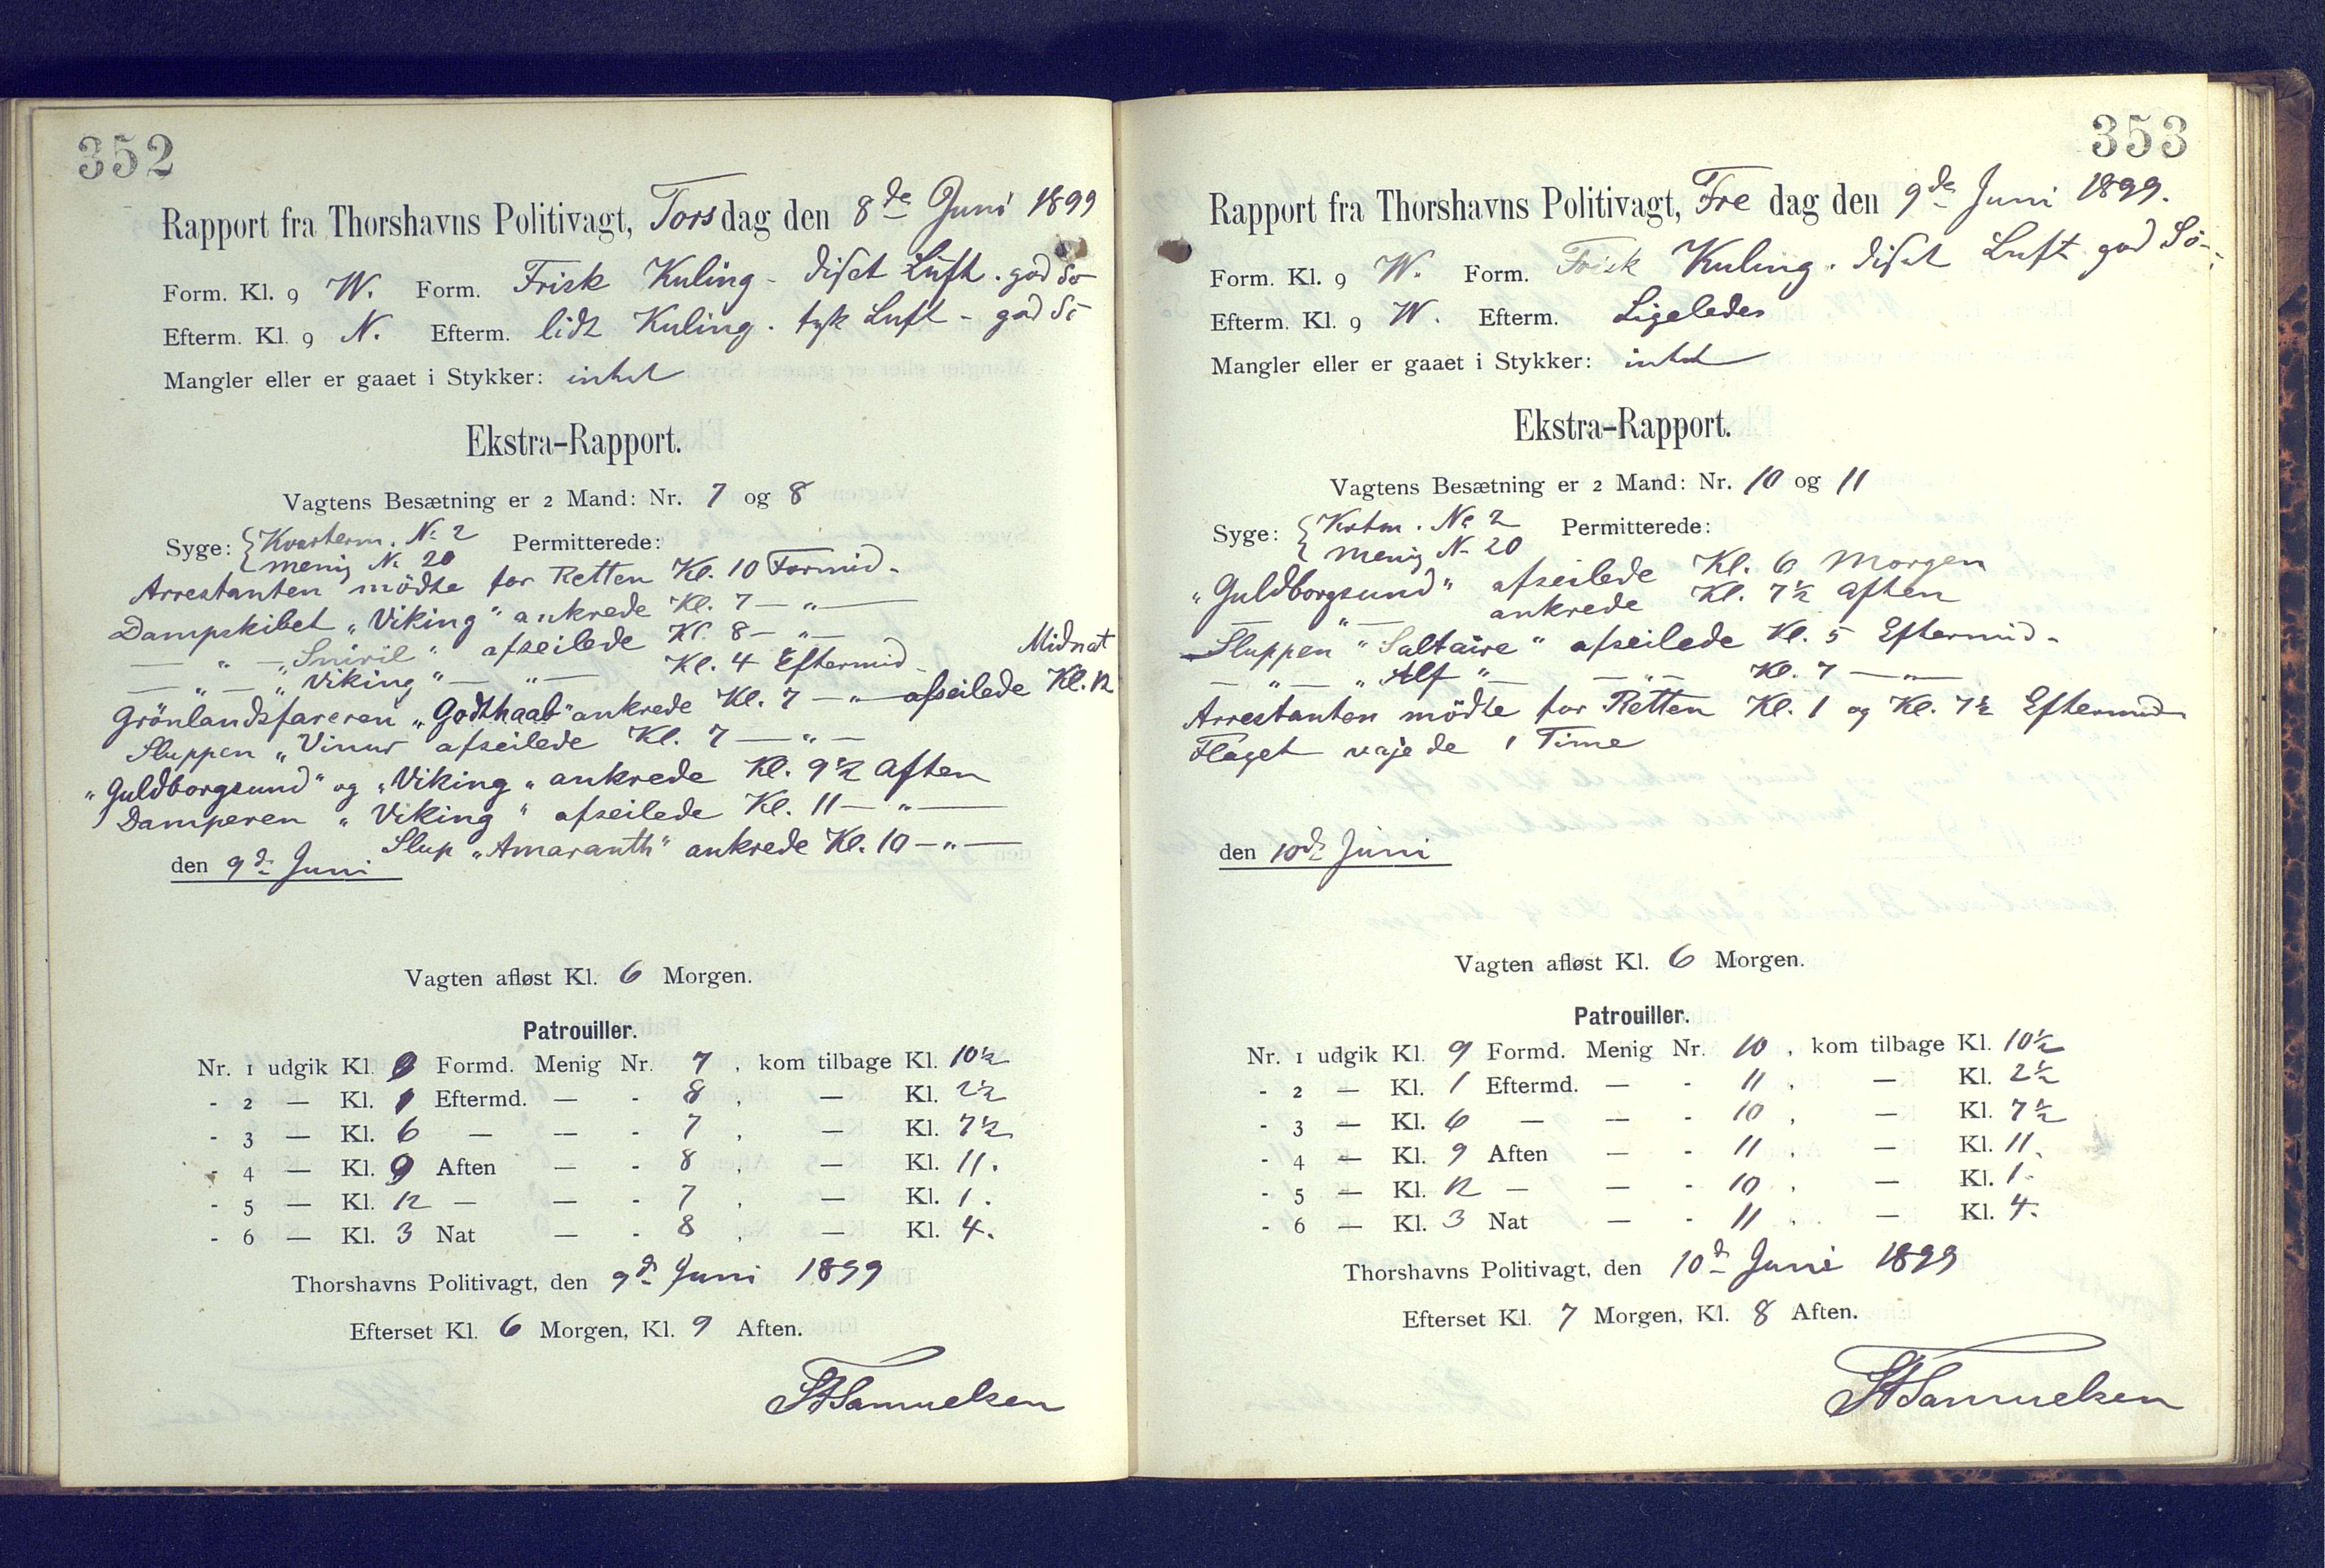 352
Rapport fra Thorshavns Politivagt, Torsdag den 8de Juni 1899
Form. Kl. 9 W. Form. Frisk Kuling - diset Luft . god Sö
Efterm. Kl. 9 N. Efterm. lidt Kuling . tyk Luft - god Sö
Mangler eller er gaaet i Stykker: intet
Ekstra-Rapport.
Vagtens Besætning er 2 Mand: Nr. 7 og 8
Syge: { Kvarterm. No 2 Permitterede:
menig No 20
Arrestanten mödte for Retten Kl. 10 Formid.
Dampskibet „Viking" ankrede Kl. 7 — „ —
— „ — „Sniril" afseilede Kl. 8 — „ —
— „ — „Viking" — „ — Kl. 4 Eftermid. Midnat
Grönlandsfareren „Godthaab" ankrede Kl. 7 — „ — afseilede Kl. 12
Sluppen „Vinur afseilede Kl. 7 — „ —
„Guldborgsund" og „Viking„ ankrede Kl. 9½ Aften
Damperen „Viking" afseilede Kl. 11 — „ —
Slup „Amaranth" ankrede Kl. 10 — „ —
den 9d Juni
Vagten afløst Kl. 6 Morgen.
Patrouiller.
Nr. 1 udgik Kl. 9 Formd. Menig Nr. 7 , kom tilbage Kl. 10½
- 2 — Kl. 1 Eftermd. — - 8 , — Kl. 2½
- 3 — Kl. 6 — — - 7 , — Kl. 7½
- 4 — Kl. 9 Aften — - 8 , — Kl. 11.
- 5 — Kl. 12 — — - 7 , — Kl. 1.
- 6 — Kl. 3 Nat — - 8 , — Kl. 4.
Thorshavns Politivagt, den 9d Juni 1899
Efterset Kl. 6 Morgen, Kl. 9 Aften.
Samuelsen
353
Rapport fra Thorshavns Politivagt, Fre dag den 9de Juni 1899.
Form. Kl. 9 W. Form. Frisk Kuling . diset Luft god Sö -
Efterm. Kl. 9 W. Efterm. Ligeledes
Mangler eller er gaaet i Stykker: intet
Ekstra-Rapport.
Vagtens Besætning er 2 Mand: Nr. 10 og 11
Syge: { Kvtm . No 2 Permitterede:
menig No 20
„Guldborgsund" afseilede Kl. 6 Morgen
— „ — ankrede Kl. 7½ Aften
Sluppen „Saltaire" afseilede Kl. 5 Eftermid.
— „ — „Alf" — — „ — Kl. 7 — „ —
Arrestanten mödte for Retten Kl. 1 og Kl. 7½ Eftermid.
Flaget vajede 1 Time
den 10d Juni
Vagten afløst Kl. 6 Morgen.
Patrouiller.
Nr. 1 udgik Kl. 9 Formd. Menig Nr. 10 , kom tilbage Kl. 10½
- 2 — Kl. 1 Eftermd. — - 11 , — Kl. 2½
- 3 — Kl. 6 — — - 10 , — Kl. 7½
- 4 — Kl. 9 Aften — - 11 , — Kl. 11.
- 5 — Kl. 12 — — - 10 , — Kl. 1.
- 6 — Kl. 3 Nat — - 11 , — Kl. 4.
Thorshavns Politivagt, den 10d Juni 1899
Efterset Kl. 7 Morgen, Kl. 8 Aften.
Samuelsen